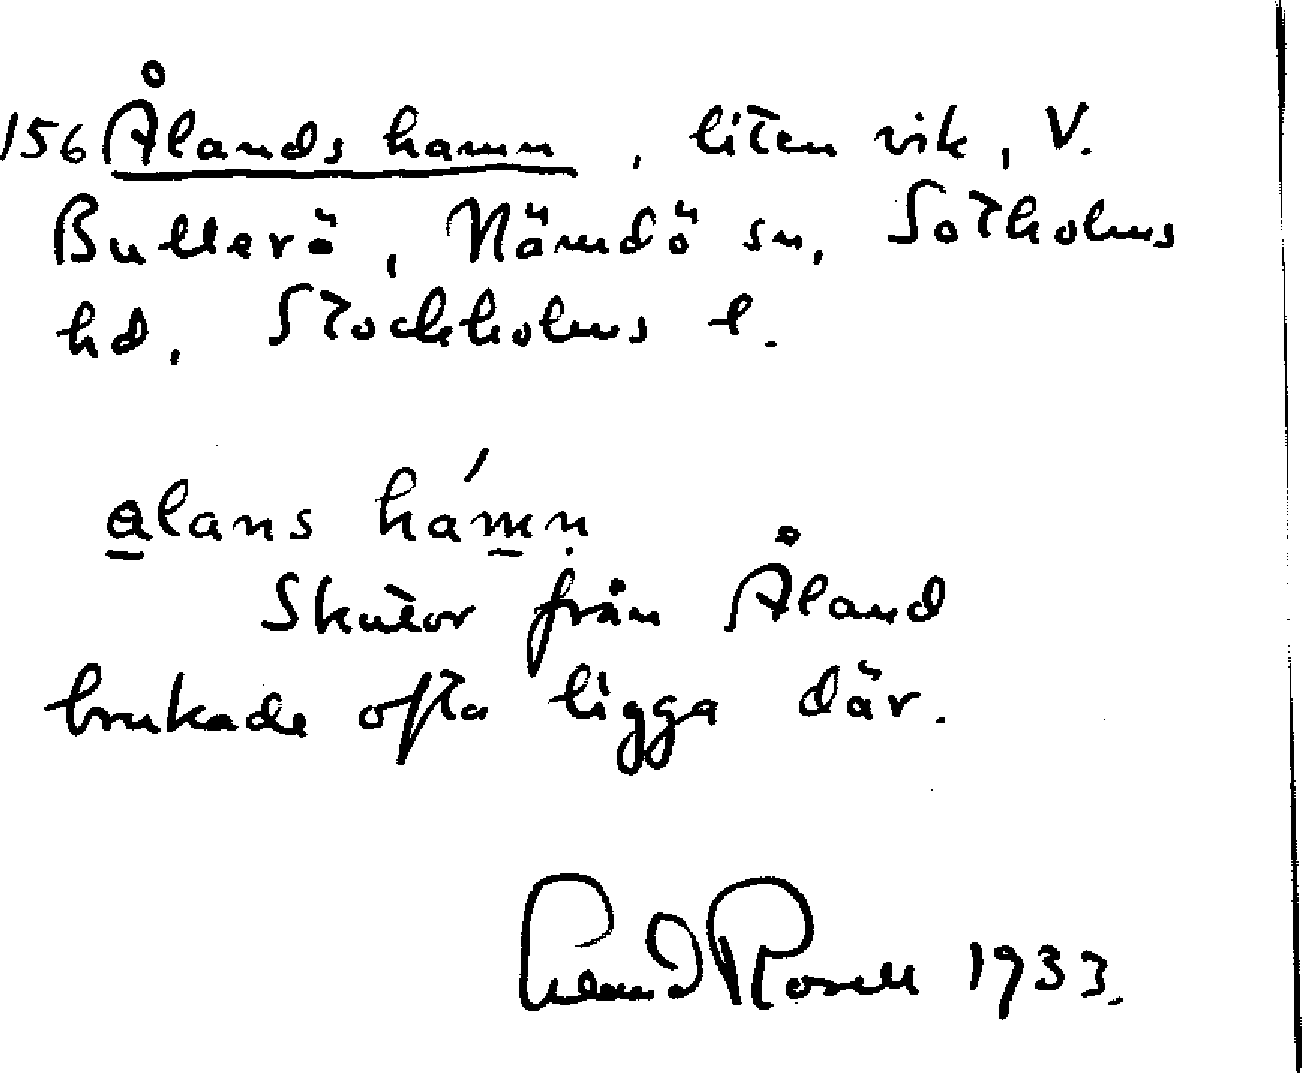 156 Ålands hamn, liten vik, V.
Bullerö, Nämdö sn, Sotholms
hd, Stockholms l.
a̲lans hám̲ṇ
Skutor från Åland
brukade ofta ligga där.
Rosell 1933.